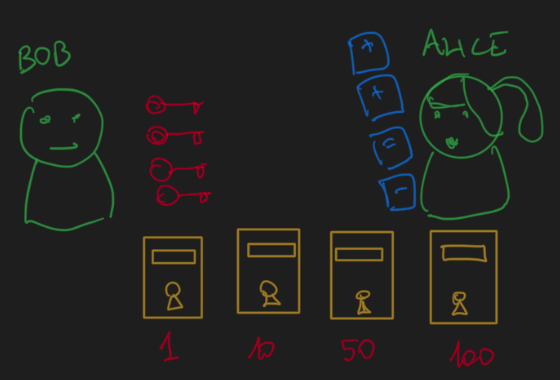 BOB
ALICE
+
+
=
-
1 10 50 100